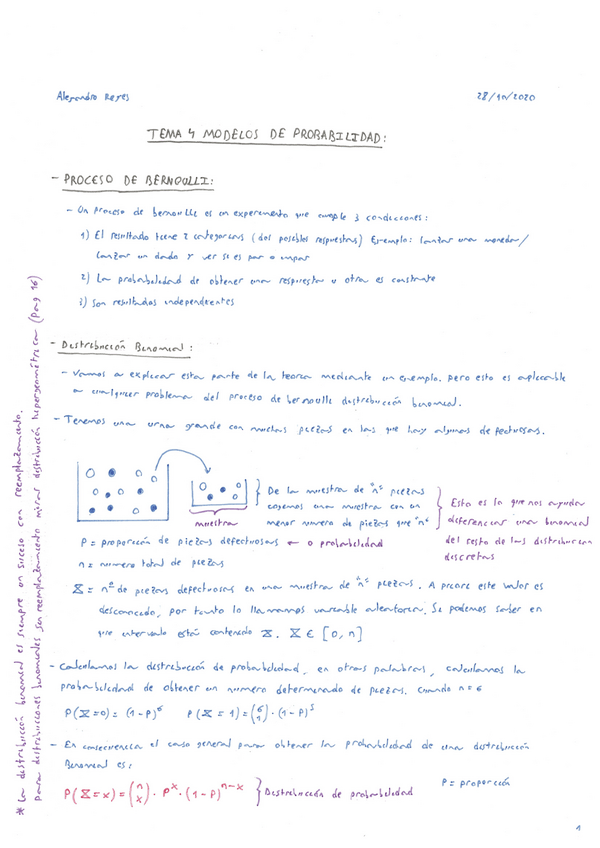 Alejandro Reyes
28/10/2020
TEMA 4 MODELOS DE PROBABILIDAD:
- PROCESO DE BERNOULLI:
- Un proceso de bernoulli es un experimento que cumple 3 condiciones:
1) El resultado tiene 2 categorias (dos posibles respuestas) Ejemplo: lanzar una moneda/
lanzar un dado y ver si es par o impar
2) La probabilidad de obtener una respuesta u otra es constante
3) Son resultados independientes
- Distribución Binomial:
- Vamos a explicar esta parte de la teoria mediante un ejemplo. Pero esto es aplicable
a cualquier problema del proceso de bernoulli distribución binomial.
- Tenemos una urna grande con muchas piezas en las que hay algunas defectuosas.
De la muestra de "n" piezas
cogemos una muestra con un
menor numero de piezas que "n"
muestra
Esto es lo que nos ayuda
diferenciar una binomial
del resto de las distribucion
discretas
P = proporción de piezas defectuosas ← o probabilidad
n = numero total de piezas
X = nº de piezas defectuosas en una muestra de "n" piezas. A priori este valor es
desconocido, por tanto lo llamamos variable aleatoria. Si podemos saber en
que intervalo está contenido X. X ∈ [0, n]
- Calculamos la distribución de probabilidad, en otras palabras, calculamos la
probabilidad de obtener un numero determinado de piezas. Cuando n = 6
P(X=0) = (1-P)^6 P(X = 1) = (6 1) · (1-P)^5
- En consecuencia el caso general para obtener la probabilidad de una distribución
Binomial es:
P(X=x) = (n x) · P^x · (1-P)^n-x } Distribución de probabilidad
P = proporción
* La distribución binomial es siempre un suceso con reemplazamiento.
Para distribuciones binomiales sin reemplazamiento mirar distribución hipergeométrica (Pag 16)
1